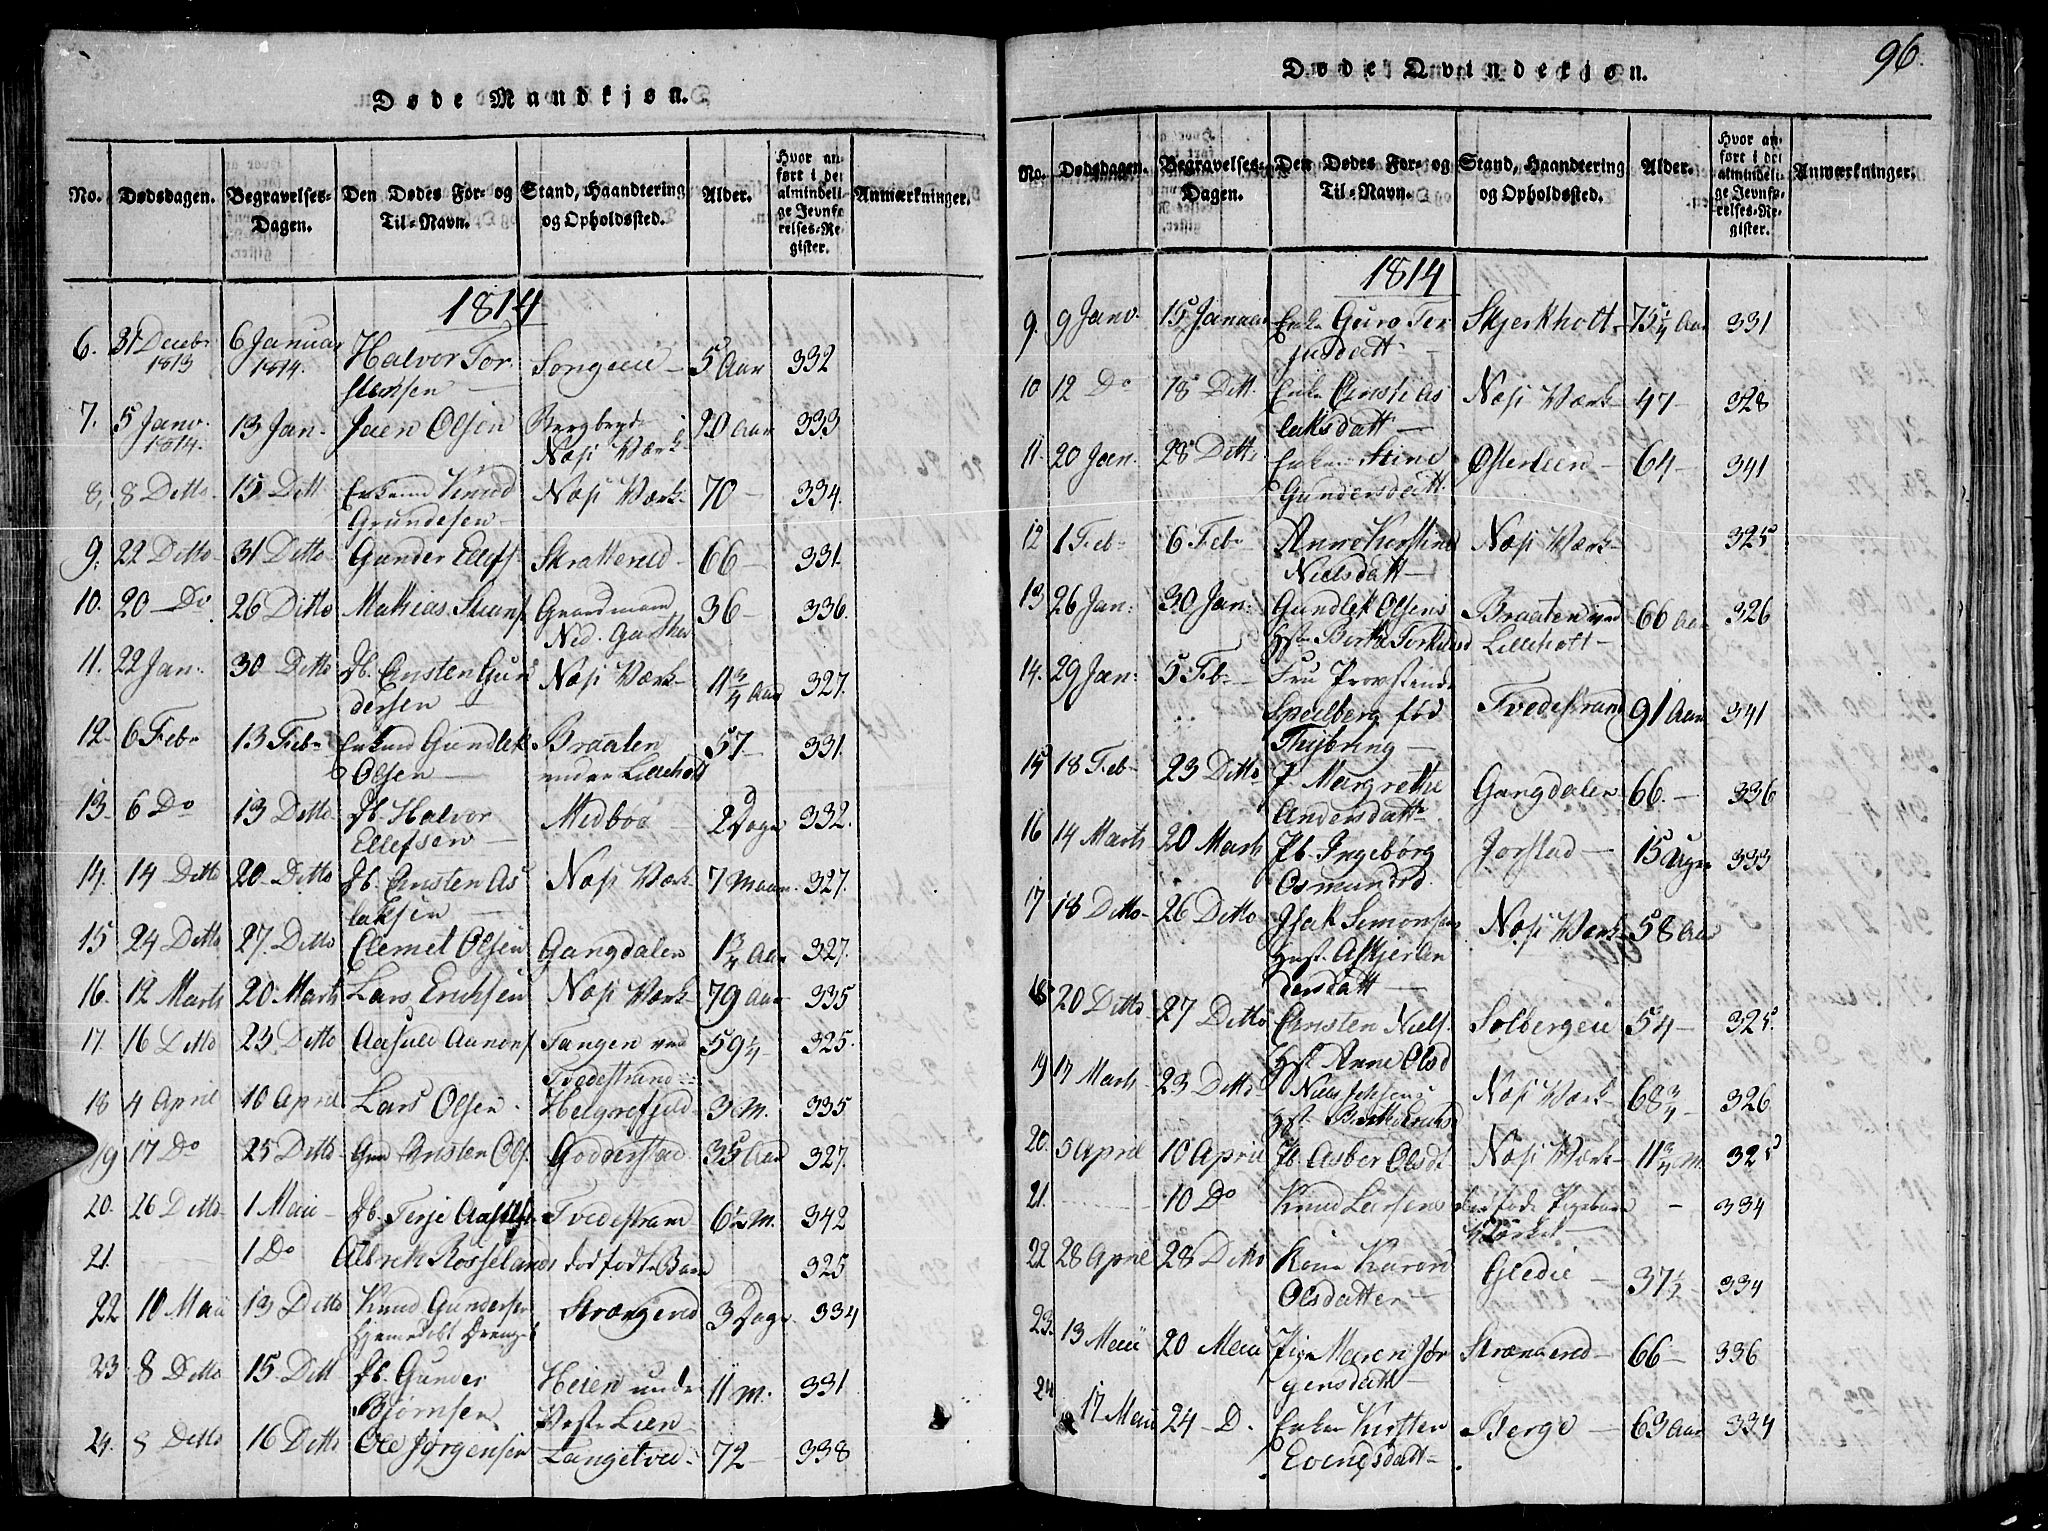 Døde Mandkjøn.
No. Dødsdagen. Begravelses-Dagen. Den Dødes For- og Til-Navn. Stand, Haandtering og Opholdssted. Alder. Hvor anført i det almindelige Jevnførelses-Register. Anmærkninger.
1814
6. 31 Decbr 1813 6 Januar 1814. Halvor Torstensen Songeeie 5 Aar 332
7. 5 Janv. 1814. 13 Jan. Jaen Olsen Næss Værk 20 Aar 333
8. 8 Ditto 15 Ditt Enkemd Knud Grundesen Næss Værk 70 334.
9. 22 Ditto 31 Ditto Gunder Ellefs. Skratterud 66 331.
10. 20 Do 26 Ditto Mathias 36 336.
11. 22 Jan: 30 Ditto Christen Gundersen Næss Værk 11 3/4 Aar 327.
12. 6 Febr 13 Febr Enkemd Gundlek Olsen Braaten under Lilleholt 57 331.
13. 6 Do 13 Ditto Halvor Ellefsen Medboe 2 Dage 332.
14. 14 Ditto 20 Ditto Christen Aslaksen Næss Værk 7 Maan. 327.
15 24 Ditto 27. Ditto Clemet Olsen Gangdalen 1 3/4 Aar 327.
16. 12 Marts 20 Marts Lars Erichsen Næss Værk 79 Aar 335
17. 16 Ditto 23 Ditto Aasuld Aanons. Tangen ved Tvedestrand 59 1/4 325.
18 4 April 10 April Lars Olsen Helgrefjeld 3 M. 335
19 17 Do 25 Ditto Christen Ols. Godderstad 35 Aar 327.
20. 26 Ditto 1 Maii Terje Tvedestrand 6 1/2 M. 342
21. 1 Do Albrek Rosselands dødfødte Barn 325
22 10 Maii 13 Ditto Knud Gundersen hjemedøbt Strængerud 3 Dage 334
23. 8 Ditto 15 Ditt Gunder Bjørnsen Heien under Vestr Lien 11 M. 331
24. 8 Ditto 16 Ditto Ole Jørgensen Langetved 72 338
Døde Qvindekjøn. 96.
No. Dødsdagen. Begravelses-Dagen. Den Dødes For- og Til-Navn. Stand, Haandtering og Opholdssted. Alder. Hvor anført i det almindelige Jevnførelses-Register. Anmærkninger.
1814
9. 9 Janv. 15 Januar Enke Guro Terjusdatt Skjerkholt 75 1/4 Aar 331
10 12 Do 18 Ditt. Enke Aslaksdatt Næss Værk 47 328
11. 20 Jan. 28 Ditto Enke Stine Gundersdatt Østerleen 64 341
12 1 Febr 6 Febr Anne Kirstine Nielsdatt Næss Værk 325
13 26 Jan: 30 Jan: Gundlek Olsens Hst. Berthe Braaten ved Lilleholt 66 Aar 326
14. 29 Jan: 5 Febr Fru Provstinde Spedberg fød Tvedestrand 91 Aar 341
15 18 Feb 23 Ditto P. Margrethe Andersdatt. Gangdalen 66. 336
16 14 Marts 20 Marts Ingebørg Osmundsd. Jorstad 15 Uger 333
17 18 Ditto 26 Ditto Isak Simonsens Hust. Næss Værk 58 Aar
18 20 Ditto 27 Ditto Christen Niels. Hst. Anne Olsd Solbergeie 54 325.
19 17 Marts 23 Ditto Niels Hst. Næss Værk 68 3/4 326
20. 5 April 10 April Asber Olsdt Næss Værk 11 3/4 M. 325
21. 10 Do Knud Larsens dødføde Pigebarn 334
22 28 April 28 Ditto Kone Karen Olsdatter Gledie 37 1/2 334
23. 13 Maii 20 Maii Pige Maren Jørgensdatt Strængerud 66 336
24 17 Maii 24 D. Enke Kirsten Evensdatt Berge 63 Aar 334